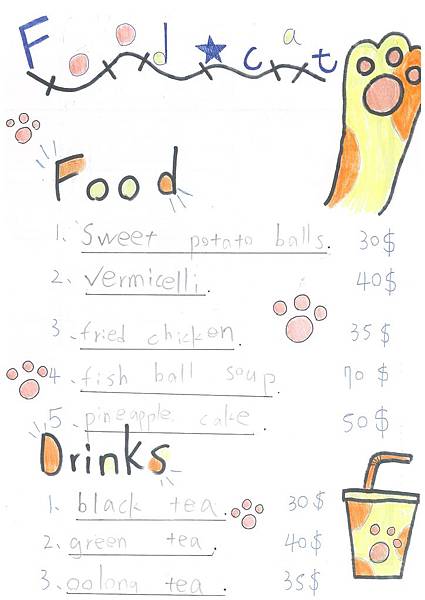 Food ★ cat
Food
1、Sweet potato balls. 30$
2、vermicelli. 40$
3、fried chicken. 35$
4、fish ball soup. 70$
5、pineapple cake. 50$
Drinks
1、black tea. 30$
2、green tea. 40$
3、oolong tea. 35$